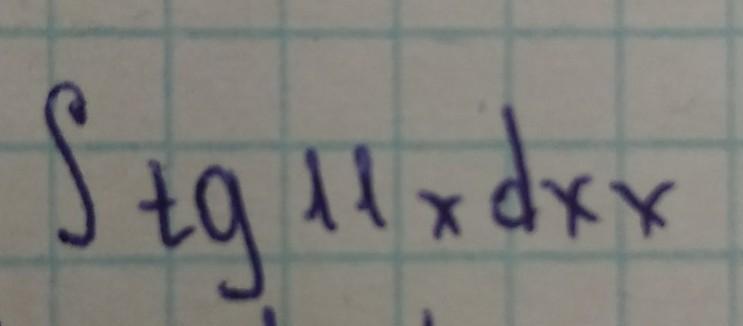 ∫ tg 11 x dx x